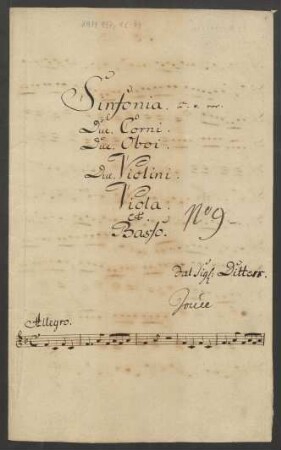 Sinfonia.
Due. Corni.
Due. Oboi.
Due. Violini.
Viola.
Et
Basso.
No 9
Dal Sigr: Ditters.
Allegro.